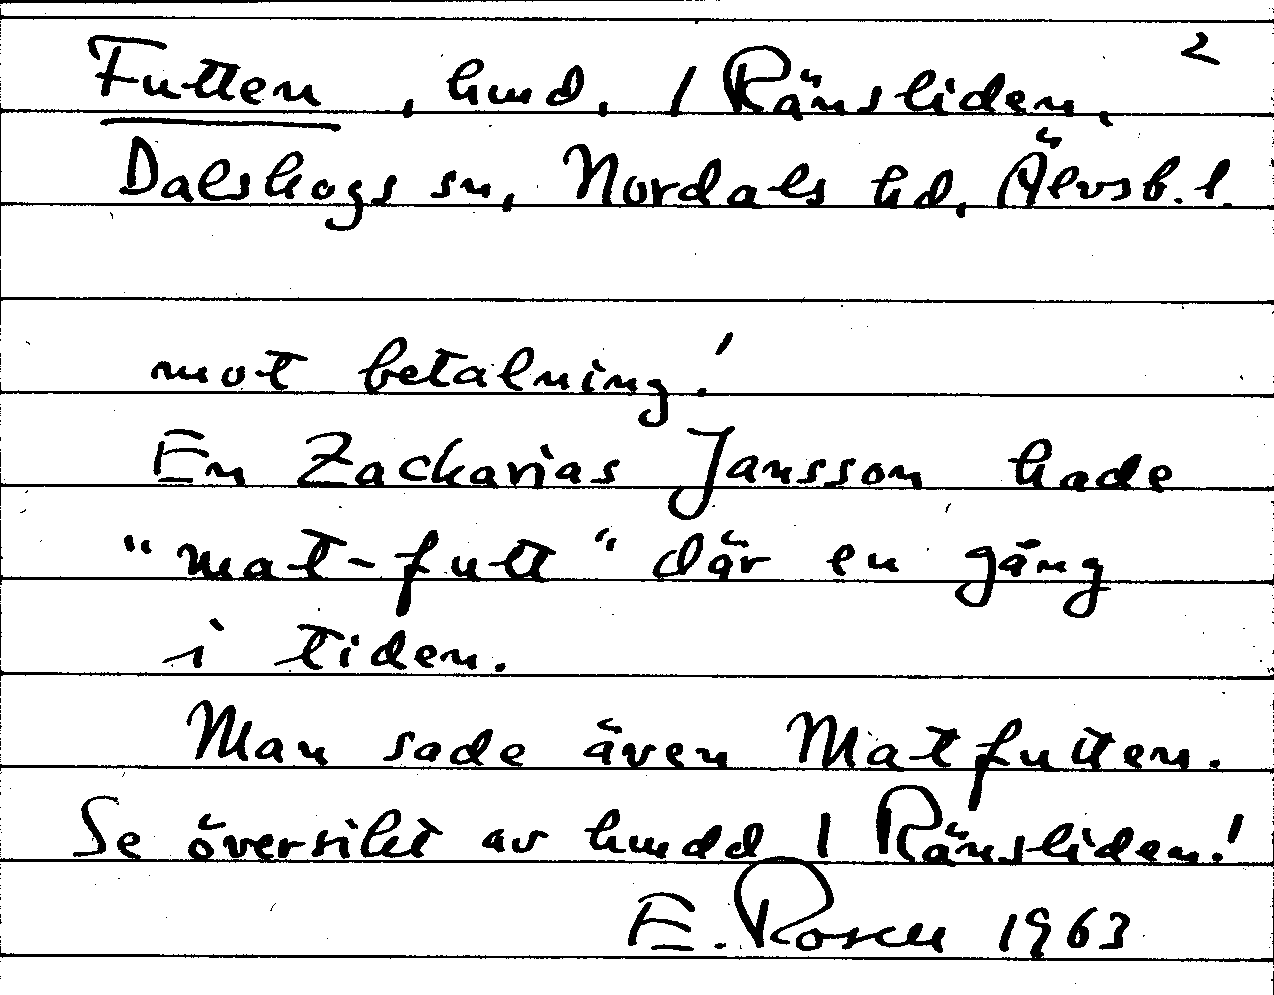 2
Futten, hmd. 1 Ränsliden,
Dalskogs sn, Nordals hd, Älvsb. l.
mot betalning!
En Zackarias Jansson hade
"mat-futt" där en gång
i tiden.
Man sade även Matfutten.
Se översikt av hmdd 1 Ränsliden!
E. Rosell 1963